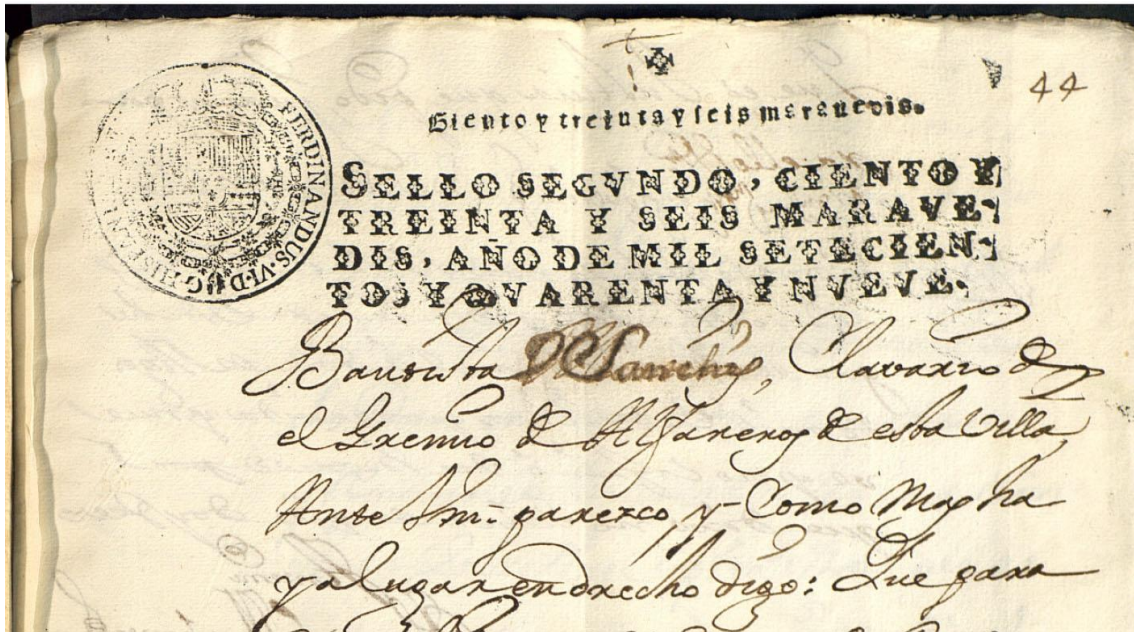 44
Ciento y treinta y seis maravedis.
FERDINANDUS·VI·D·G·HISPANI
SELLO SEGVNDO, CIENTO Y
TREINTA Y SEIS MARAVE-
DIS, AÑO DE MIL SETECIEN-
TOS Y QVARENTA Y NVEVE.
Bautista Sanchis, Clavario de
el Gremio de Alfareros de esta Villa,
Ante Vm. parezco, y Como mas ha
ya lugar en drecho digo: Que para